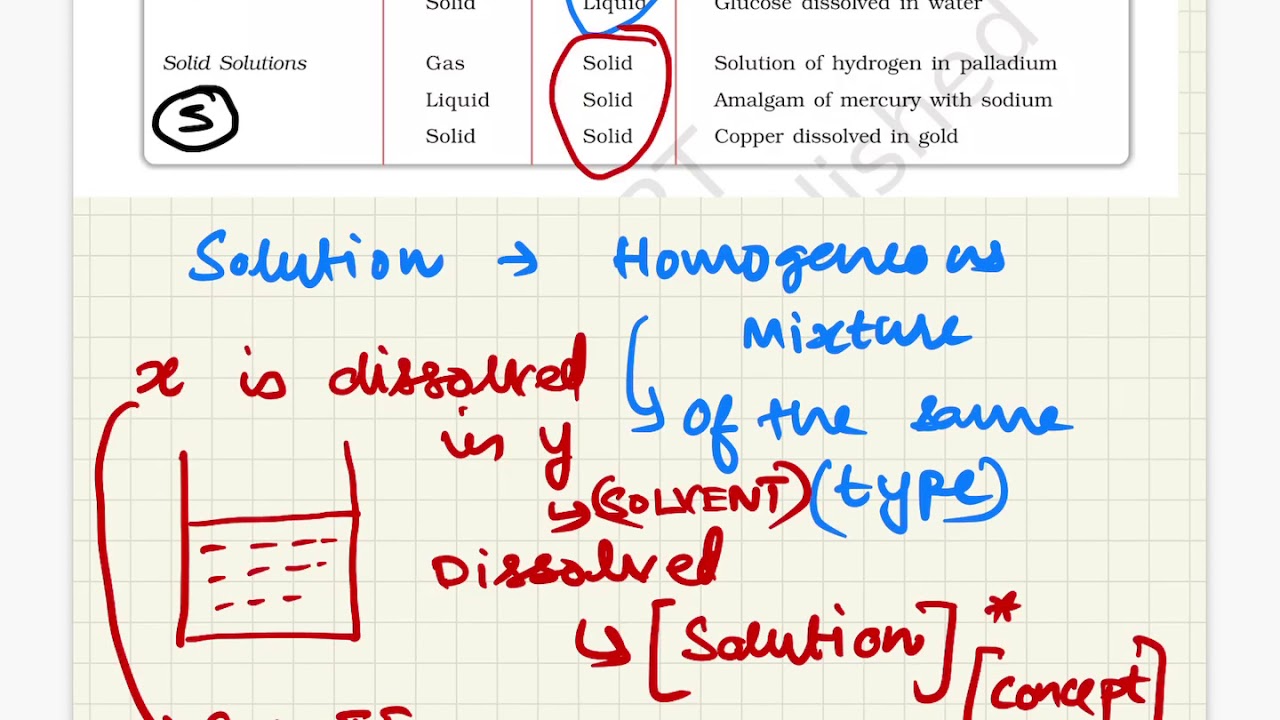 Solid Liquid Glucose dissolved in water
Solid Solutions Gas Solid Solution of hydrogen in palladium
Liquid Solid Amalgam of mercury with sodium
S Solid Solid Copper dissolved in gold
lished
Solution → Homogeneous
Mixture
x is dissolved
of the same
in y
(SOLVENT) (type)
Dissolved
[Solution] *
[concept]